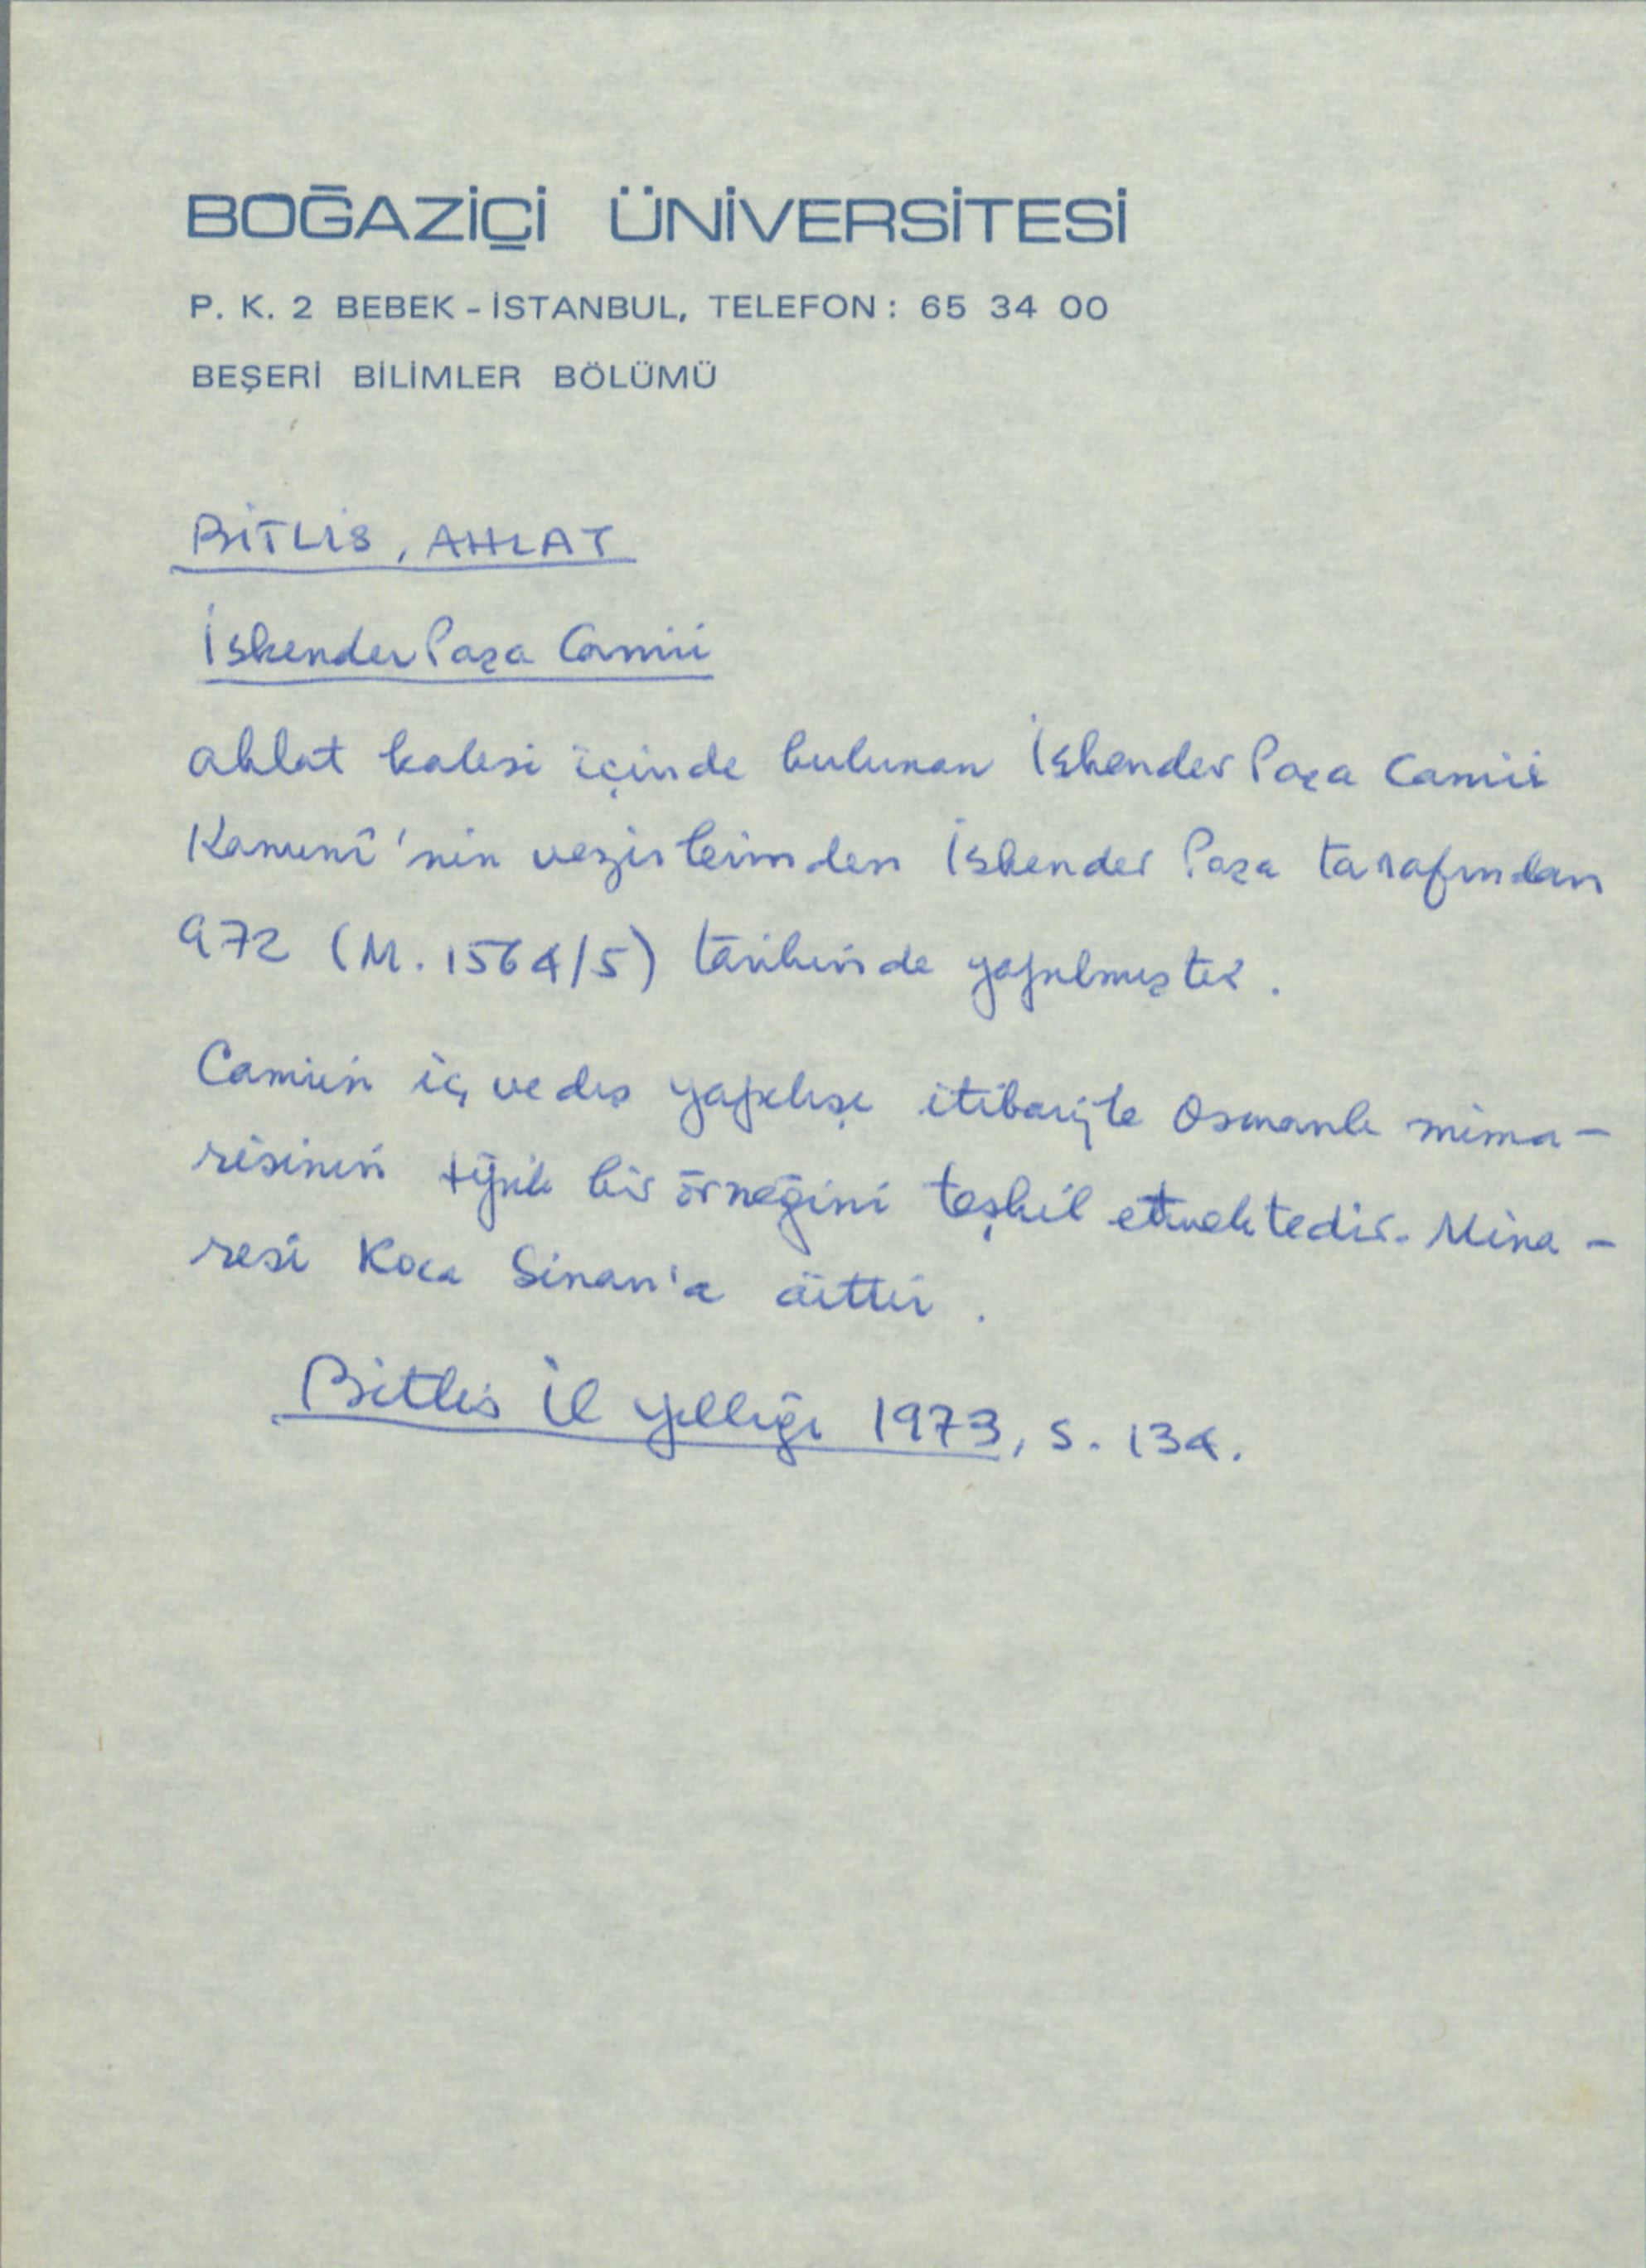 BOĞAZİÇİ ÜNİVERSİTESİ
P. K. 2 BEBEK - İSTANBUL, TELEFON : 65 34 00
BEŞERİ BİLİMLER BÖLÜMÜ
BİTLİS, AHLAT
İskender Paşa Camii
Ahlat kalesi içinde bulunan İskender Paşa Camii
Kanunî'nin vezirlerinden İskender Paşa tarafından
972 (M. 1564/5) tarihinde yapılmıştır.
Camiin iç ve dış yapılışı itibariyle Osmanlı mima-
risinin tipik bir örneğini teşkil etmektedir. Mina-
resi Koca Sinan'a aittir.
Bitlis İl Yıllığı 1973, s. 134.